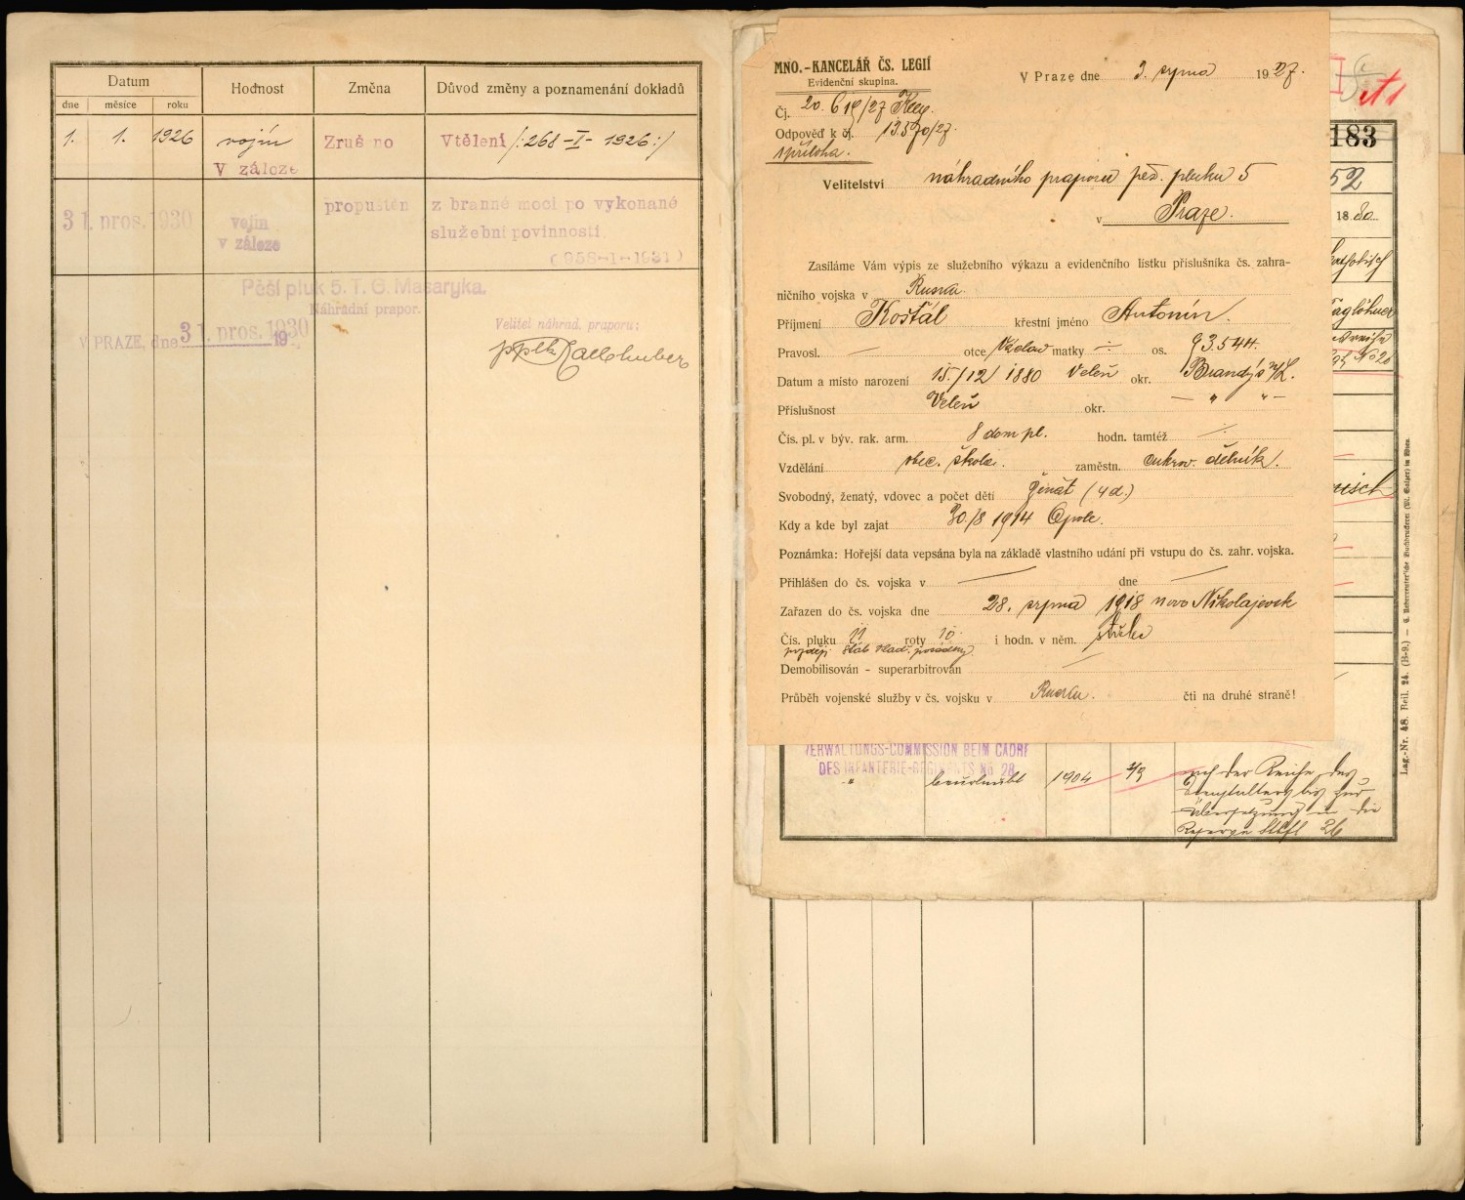 Datum
Hodnost
Změna
Důvod změny a poznamenání dokladů
dne měsíce roku
1. 1. 1926 vojín Zruš no Vtělení /:268-I- 1926:/
V záloze
31. pros. 1930 vojín propuštěn z branné moci po vykonané
v záloze služební povinnosti
(958-I-1931)
Pěší pluk 5. T. G. Masaryka.
Náhradní prapor.
V PRAZE, dne 31. pros. 1930 19
Velitel náhrad. praporu:
MNO.-KANCELÁŘ ČS. LEGIÍ
Evidenční skupina.
V Praze dne 3. srpna 1927.
Čj. 20.619/27
Odpověď k čj. 13570/27.
1 příloha.
Velitelství náhradního praporu pěš. pluku 5
v Praze.
Zasíláme Vám výpis ze služebního výkazu a evidenčního listku příslušníka čs. zahra-
ničního vojska v Rusku.
Příjmení Košťál křestní jméno Antonín.
Pravosl. — otce Václav matky ÷ os. 93.544.
Datum a místo narození 15./12/ 1880 Veleň okr. Brandýs n/L.
Příslušnost Veleň okr. — " " —
Čis. pl. v býv. rak. arm. 8 dom pl. hodn. tamtéž ÷
Vzdělání obec. škola. zaměstn. cukrov. dělník.
Svobodný, ženatý, vdovec a počet dětí ženat (4 d.)
Kdy a kde byl zajat 30./8 1914 Opole.
Poznámka: Hořejší data vepsána byla na základě vlastního udání při vstupu do čs. zahr. vojska.
Přihlášen do čs. vojska v — dne —
Zařazen do čs. vojska dne 28. srpna 1918 novo Nikolajevsk
Čís. pluku 11 roty 10. i hodn. v něm. střelec
později štáb vlad.
Demobilisován - superarbitrován —
Průběh vojenské služby v čs. vojsku v Rusku. čti na druhé straně!
183
52
1880
katholisch
VERWALTUNGS-COMMISSION BEIM CADRE
DES INFANTERIE-REGIMENTS No 28
" beurlaubt 1904
nach der Reihe des
bis zur
Übersetzung in die
Reserve
Lag.-Nr. 48. Beil. 24. (H-9.)